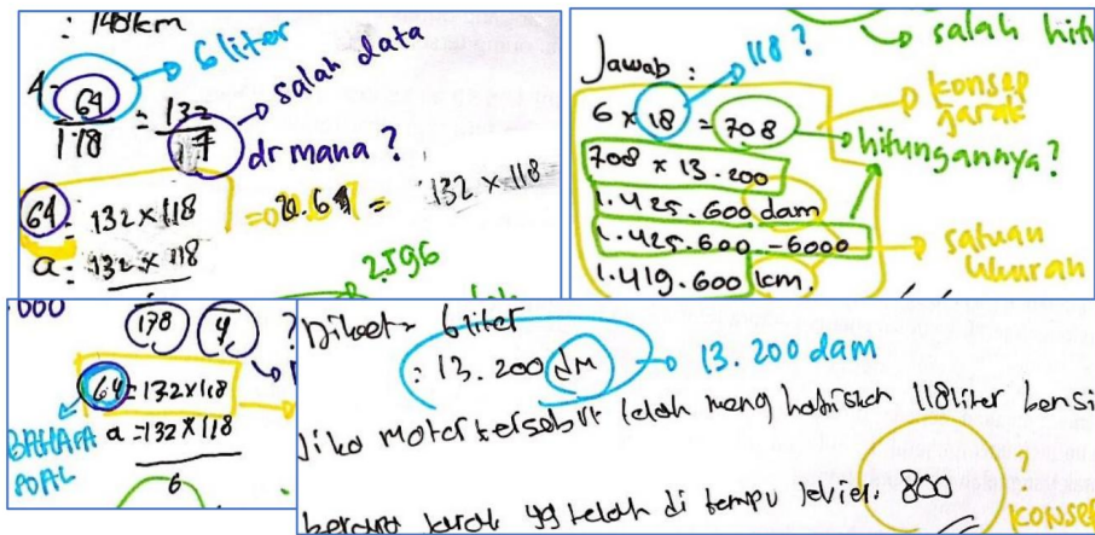 : 148km
6 liter
salah data
4 = 64 / 178 = 132 / 17
dr mana ?
64 : 132 x 118
132 x 118
a : 132 x 118
2596
118 ?
salah hitu
Jawab :
konsep
jarak
6 x 18 = 708
hitungannya ?
708 x 13.200
1.425.600 dam
1.425.600 - 6000
satuan
ukuran
1.419.600 km.
000
178 y ?
64 = 132 x 118
BAHASA
SOAL
a = 132 x 118
6
Diket > 6 liter
: 13.200 dm
13.200 dam
Jika motor tersebut telah menghabiskan 118 liter bensi
?
berapa jarak yg telah di tempu 800
KONSEP